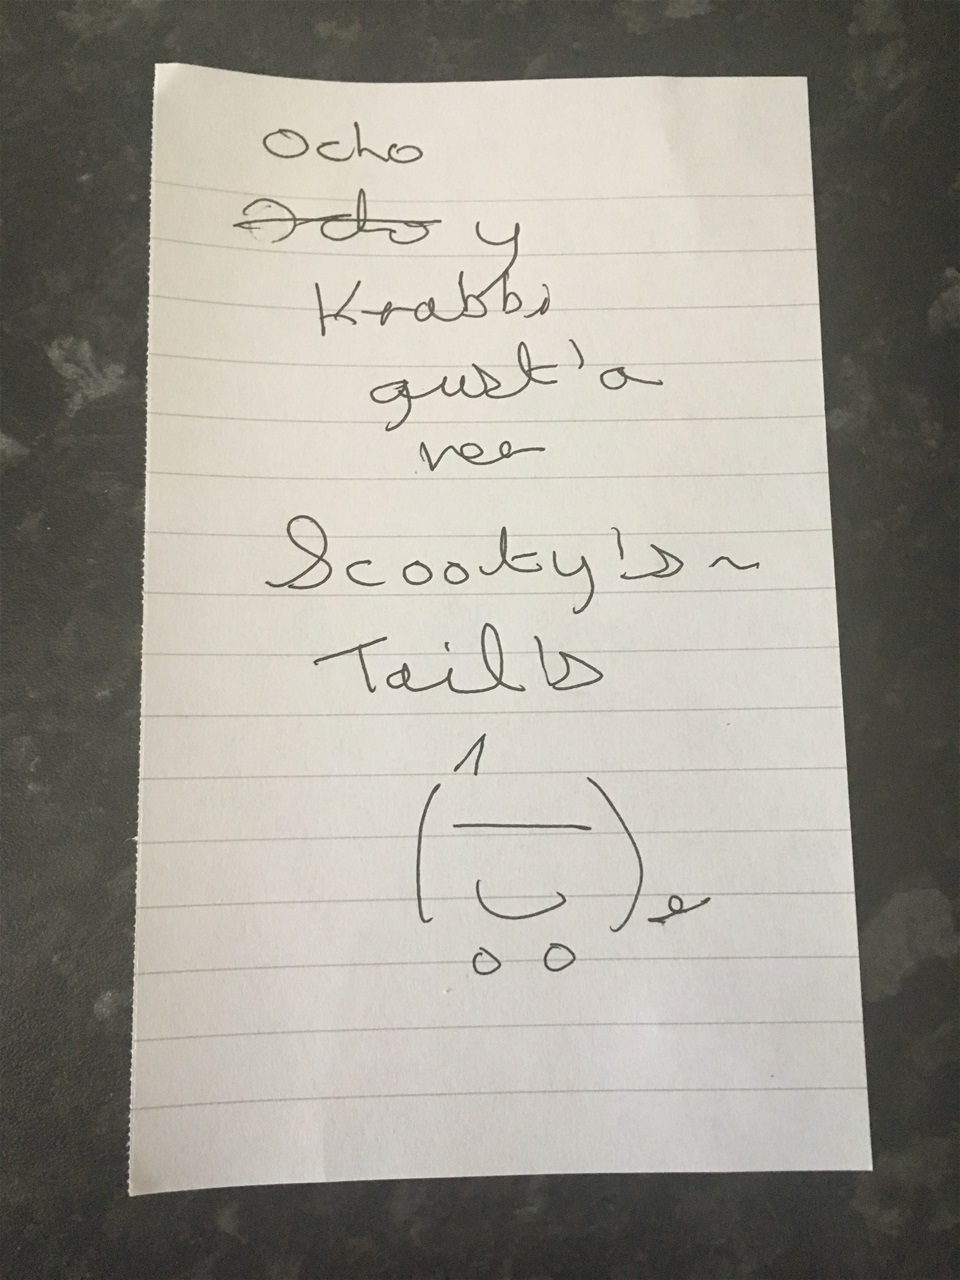 Ocho
y
Krabbi
gust'a
ver
Scooty's~
Tail's